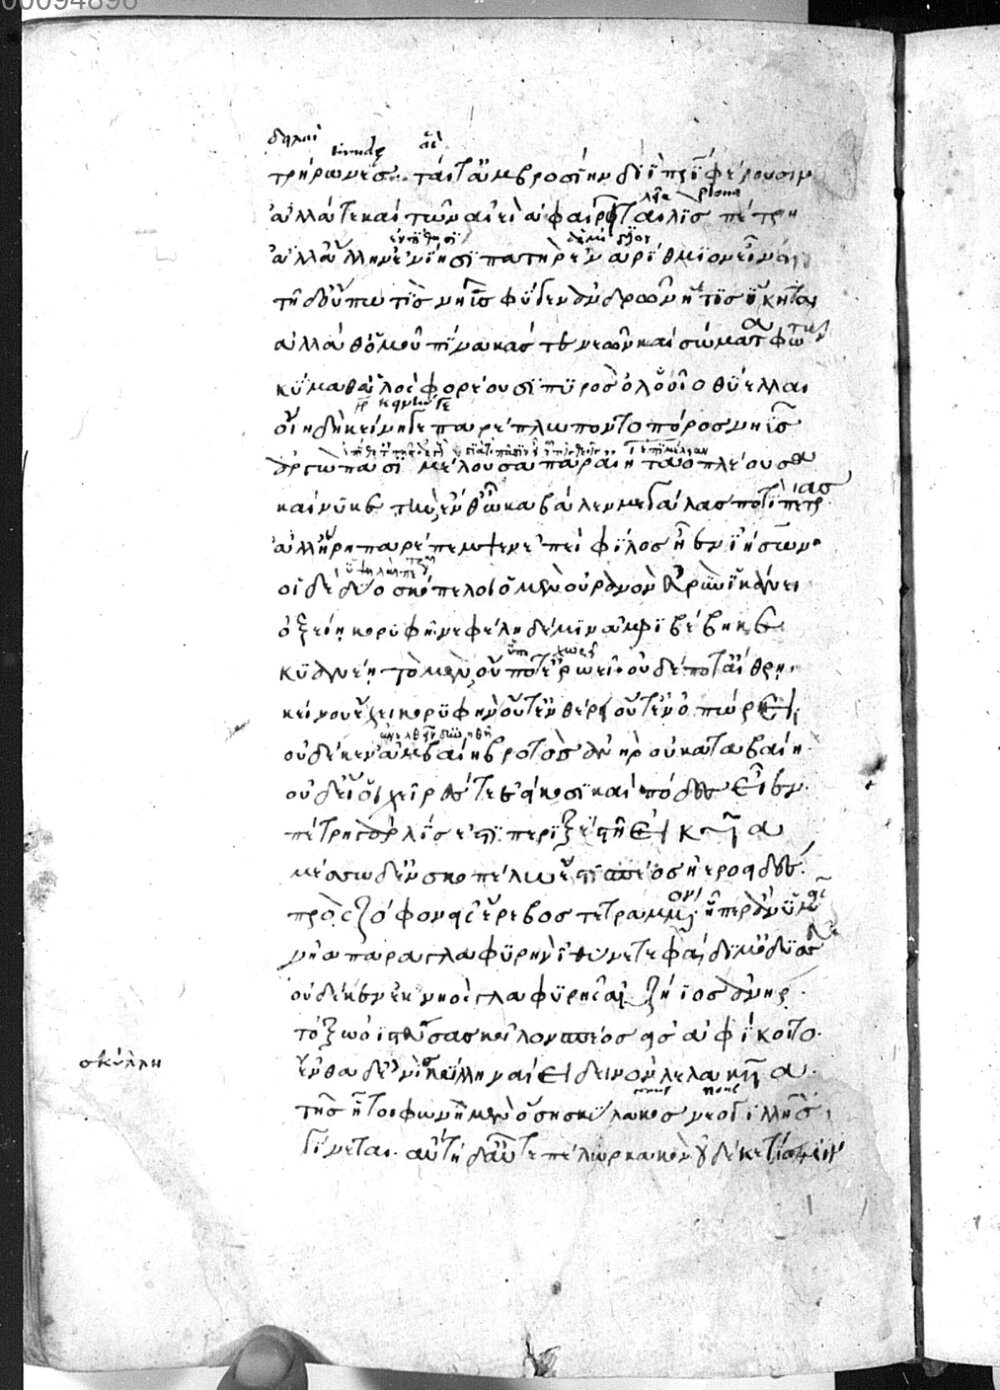 00094896
δηλοῖ
τρήρωνες· ταί τ' ἀμβροσίην διῒ πατρὶ φέρουσιν
ἀλλά τε καὶ τῶν αἰεὶ ἀφαιρεῖται λὶς πέτρη
ἀλλ' ἄλλην ἐνίησι πατὴρ ἐναρίθμιον εἶναι
τῇ δ' οὔπω τις νηῦς φύγεν ἀνδρῶν ἥτις ἵκηται
ἀλλά θ' ὁμοῦ πίνακάς τε νεῶν καὶ σώματα φωτῶν
κύμαθ' ἁλὸς φορέουσι πυρὸς ὀλοοῖο θύελλαι
οἴη δὴ κείνη γε παρέπλω ποντοπόρος νηῦς
ἀργὼ πᾶσι μέλουσα παρ' αἰήταο πλέουσα
καί νύ κε τὴν ἔνθ' ὦκα βάλεν μεγάλας ποτὶ πέτρας
ἀλλ' ἥρη παρέπεμψεν ἐπεὶ φίλος ἦεν ἰήσων·
οἱ δὲ δύο σκόπελοι ὁ μὲν οὐρανὸν εὐρὺν ἱκάνει
ὀξείῃ κορυφῇ· νεφέλη δέ μιν ἀμφιβέβηκε
κυανέη· τὸ μὲν οὔποτ' ἐρωεῖ· οὐδέ ποτ' αἴθρη
κείνου ἔχει κορυφὴν οὔτ' ἐν θέρει οὔτ' ἐν ὀπώρῃ
οὐδέ κεν ἀμβαίη βροτὸς ἀνὴρ οὐ καταβαίη·
οὐδ' εἴ οἱ χεῖρές τε ἐείκοσι καὶ πόδες εἶεν·
πέτρη γὰρ λίς ἐστι περιξέστῃ εἰκυῖα
μέσσω δ' ἐν σκοπέλω ἔστι σπέος ἠεροειδές·
πρὸς ζόφον εἰς ἔρεβος τετραμμένον· ᾗπερ ἂν ὑμεῖς
νῆα παρὰ γλαφυρὴν ἰθύνετε φαίδιμ' ὀδυσσεῦ
οὐδέ κεν ἐκ νηὸς γλαφυρῆς αἰζήϊος ἀνὴρ·
τόξω ὀϊστεύσας κοῖλον σπέος εἰσαφίκοιτο·
σκύλλη
ἔνθα δ' ἐνὶ σκύλλη ναίει δεινὸν λελακυῖα·
τῆς ἤτοι φωνὴ μὲν ὅση σκύλακος νεογιλλῆς
γίνεται· αὐτὴ δ' αὖτε πέλωρ κακὸν οὐδέ κέ τίς μιν